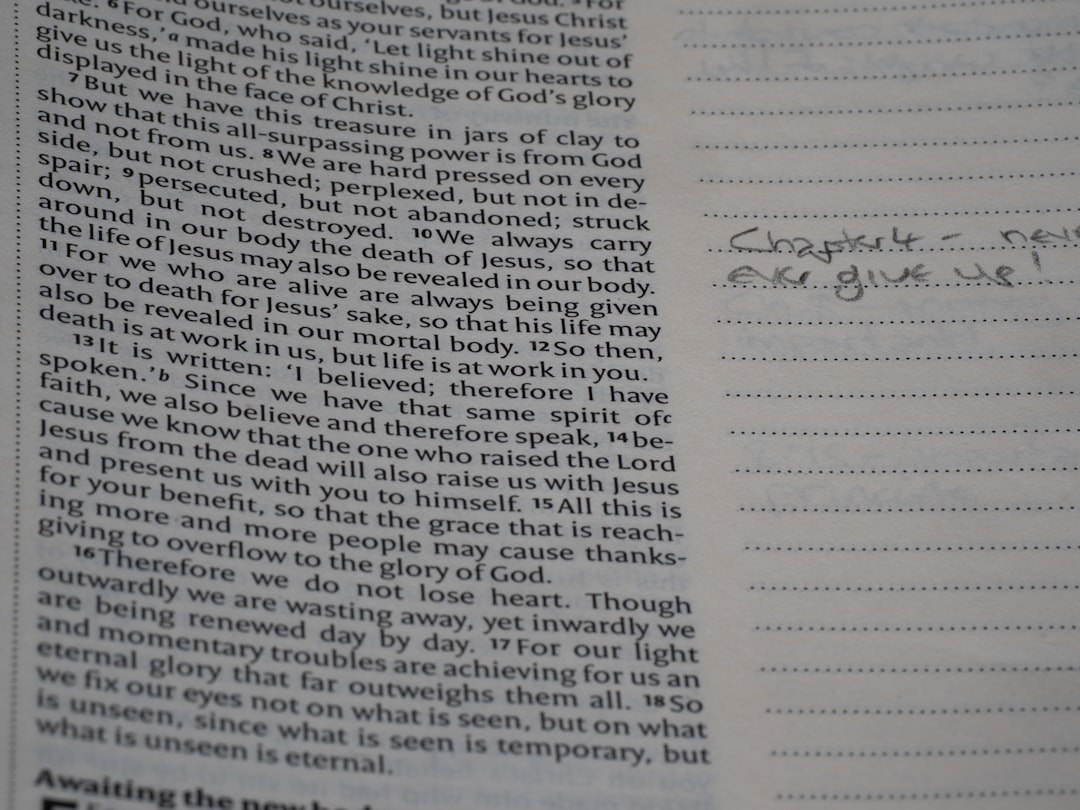 ourselves, but Jesus Christ
ourselves as your servants for Jesus'
6 For God, who said, 'Let light shine out of
darkness,' a made his light shine in our hearts to
give us the light of the knowledge of God's glory
displayed in the face of Christ.
7 But we have this treasure in jars of clay to
show that this all-surpassing power is from God
and not from us. 8 We are hard pressed on every
side, but not crushed; perplexed, but not in de-
spair; 9 persecuted, but not abandoned; struck
down, but not destroyed. 10 We always carry
around in our body the death of Jesus, so that
the life of Jesus may also be revealed in our body.
11 For we who are alive are always being given
over to death for Jesus' sake, so that his life may
also be revealed in our mortal body. 12 So then,
death is at work in us, but life is at work in you.
13 It is written: 'I believed; therefore I have
spoken.' b Since we have that same spirit of c
faith, we also believe and therefore speak, 14 be-
cause we know that the one who raised the Lord
Jesus from the dead will also raise us with Jesus
and present us with you to himself. 15 All this is
for your benefit, so that the grace that is reach-
ing more and more people may cause thanks-
giving to overflow to the glory of God.
16 Therefore we do not lose heart. Though
outwardly we are wasting away, yet inwardly we
are being renewed day by day. 17 For our light
and momentary troubles are achieving for us an
eternal glory that far outweighs them all. 18 So
we fix our eyes not on what is seen, but on what
is unseen, since what is seen is temporary, but
what is unseen is eternal.
Awaiting the new
Chapter 4 -
ever give up!